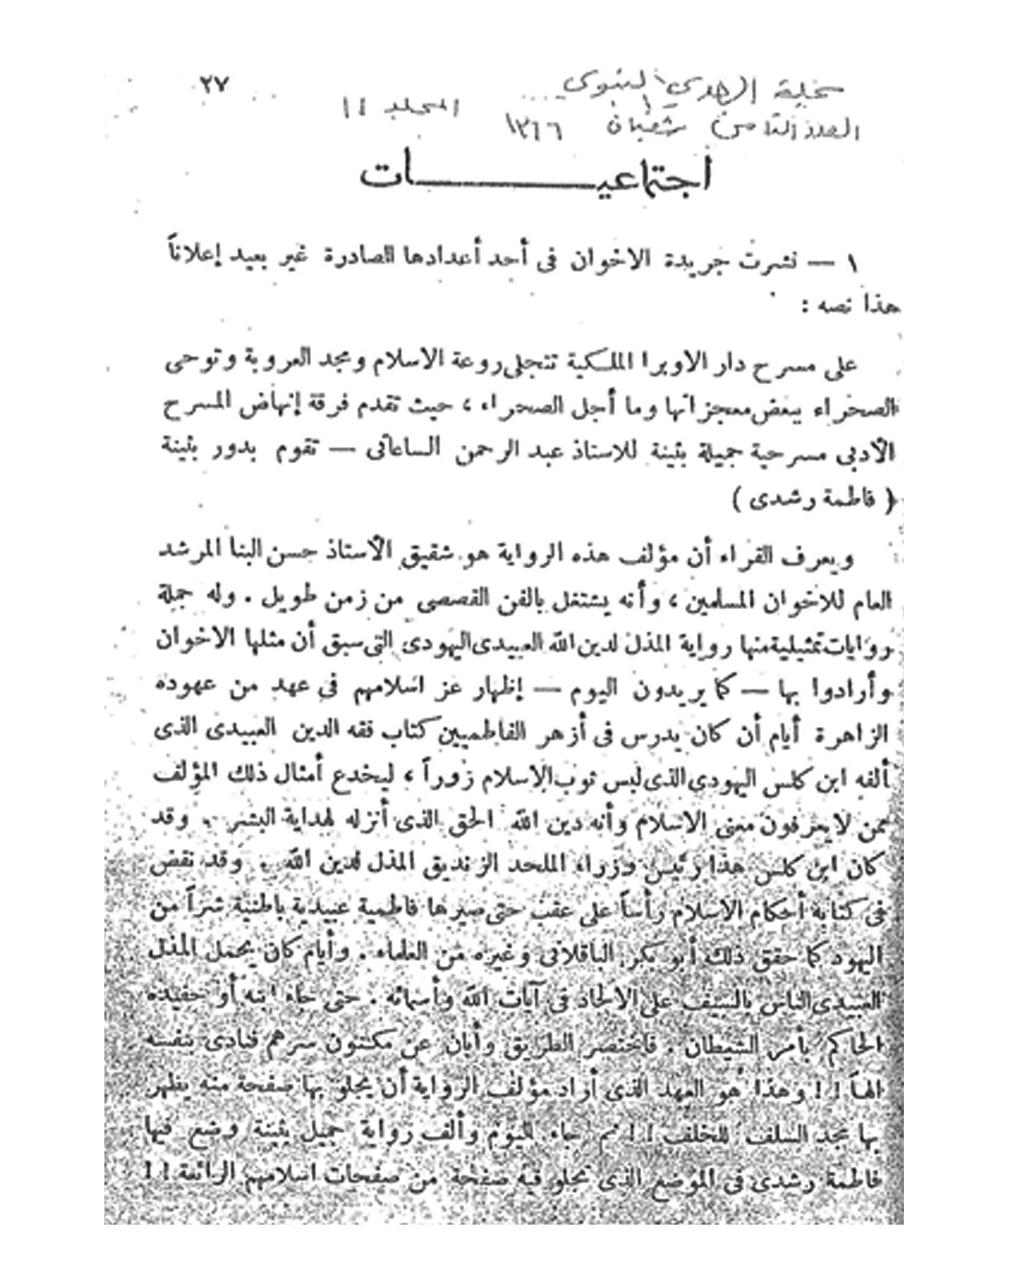 مجلة الهدي النبوي
٢٧
العدد الثامن شعبان ١٣٦٦ المجلد ١١
اجتماعيات
١ — نشرت جريدة الاخوان فى أحد أعدادها الصادرة غير بعيد إعلاناً
هذا نصه :
على مسرح دار الاوبرا الملكية تتجلى روعة الاسلام ومجد العروبة وتوحى
الصحراء ببعض معجزاتها وما أجل الصحراء ، حيث تقدم فرقة إنهاض المسرح
الأدبى مسرحية جميلة بثينة للاستاذ عبد الرحمن الساعاتى — تقوم بدور بثينة
( فاطمة رشدى )
ويعرف القراء أن مؤلف هذه الرواية هو شقيق الأستاذ حسن البنا المرشد
العام للاخوان المسلمين ، وأنه يشتغل بالفن القصصى من زمن طويل . وله جملة
روايات تمثيلية منها رواية المذل لدين الله العبيدى اليهودى التى سبق أن مثلها الاخوان
وأرادوا بها — كما يريدون اليوم — إظهار عز اسلامهم فى عهد من عهوده
الزاهرة أيام أن كان يدرس فى أزهر الفاطميين كتاب فقه الدين العبيدى الذى
ألفه ابن كلس اليهودي الذى لبس ثوب الاسلام زوراً ، ليخدع أمثال ذلك المؤلف
ممن لا يعرفون معنى الاسلام وأنه دين الله الحق الذى أنزله لهداية البشر . وقد
كان ابن كلس هذا رئيس وزراء الملحد الزنديق المذل لدين الله . وقد نقض
فى كتابه أحكام الاسلام رأساً على عقب حتى صيرها فاطمية عبيدية باطنية شراً من
اليهود كما حقق ذلك أبو بكر الباقلانى وغيره من العلماء . وأيام كان يحمل المذل
العبيدى الناس بالسيف على الالحاد فى آيات الله وأسمائه . حتى جاء ابنه أو حفيده
الحاكم بأمر الشيطان . فاختصر الطريق وأبان عن مكنون سرهم فنادى بنفسه
الهاً ! ! وهذا هو العهد الذى أراد مؤلف الرواية أن يجلو بها صفحة منه يظهر
بها مجد السلف للخلف ! ! ثم جاء اليوم وألف رواية جميل بثينة وضع فيها
فاطمة رشدى فى الموضع الذى تجلو فيه صفحة من صفحات اسلامهم الرائعة ! !